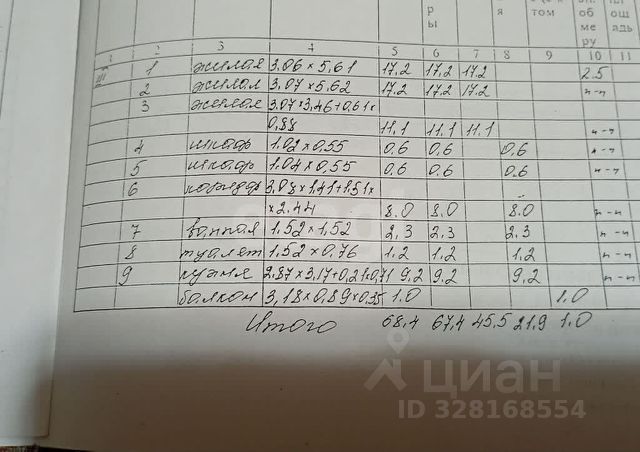 р ы
я
том
об ме ру
ощ адь
1 2 3 4 5 6 7 8 9 10 11
III 1 жилая 3,06 × 5,61 17,2 17,2 17,2 2.5
2 жилая 3,07 × 5,62 17,2 17,2 17,2 п-п
3 жилая 3,07×3,46+0,61×
0,88 11.1 11.1 11.1 п-п
4 шкаф 1.02×0.55 0,6 0,6 0,6 п-п
5 шкаф 1.04×0,55 0,6 0,6 0.6 п-п
6 коридор 3,08×1,41+1,51×
×2.44 8.0 8.0 8.0 п-п
7 ванная 1,52×1,52 2,3 2,3 2,3 п-п
8 туалет 1,52×0,76 1,2 1,2 1,2 п-п
9 кухня 2,87×3,17+0,21×0,71 9,2 9,2 9,2 п-п
балкон 3,18×0,89×0,35 1.0 1.0
Итого 68,4 67,4 45,5 21,9 1,0
циан
ID 328168554